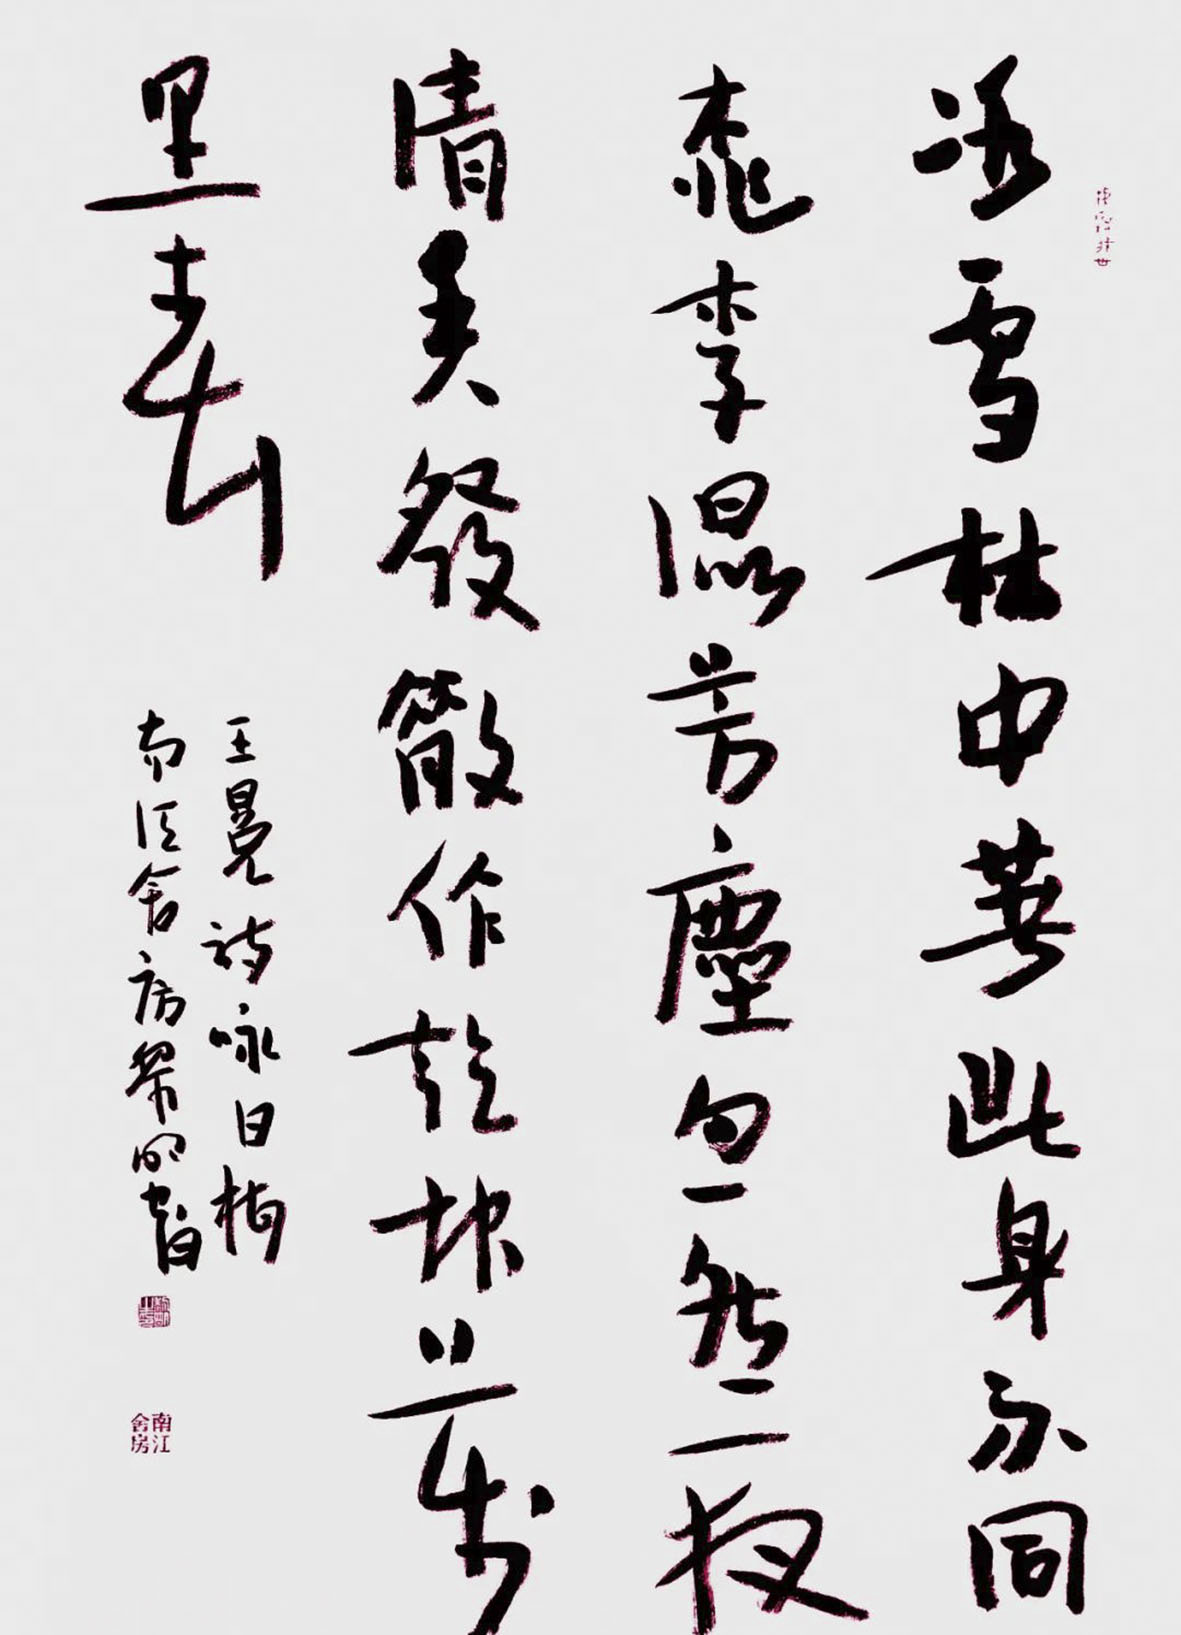 冰雪林中著此身不同
桃李混芳塵忽然一夜
清香發散作乾坤萬
里春
王冕詩咏白梅
南江舍房
書
南江
舍房